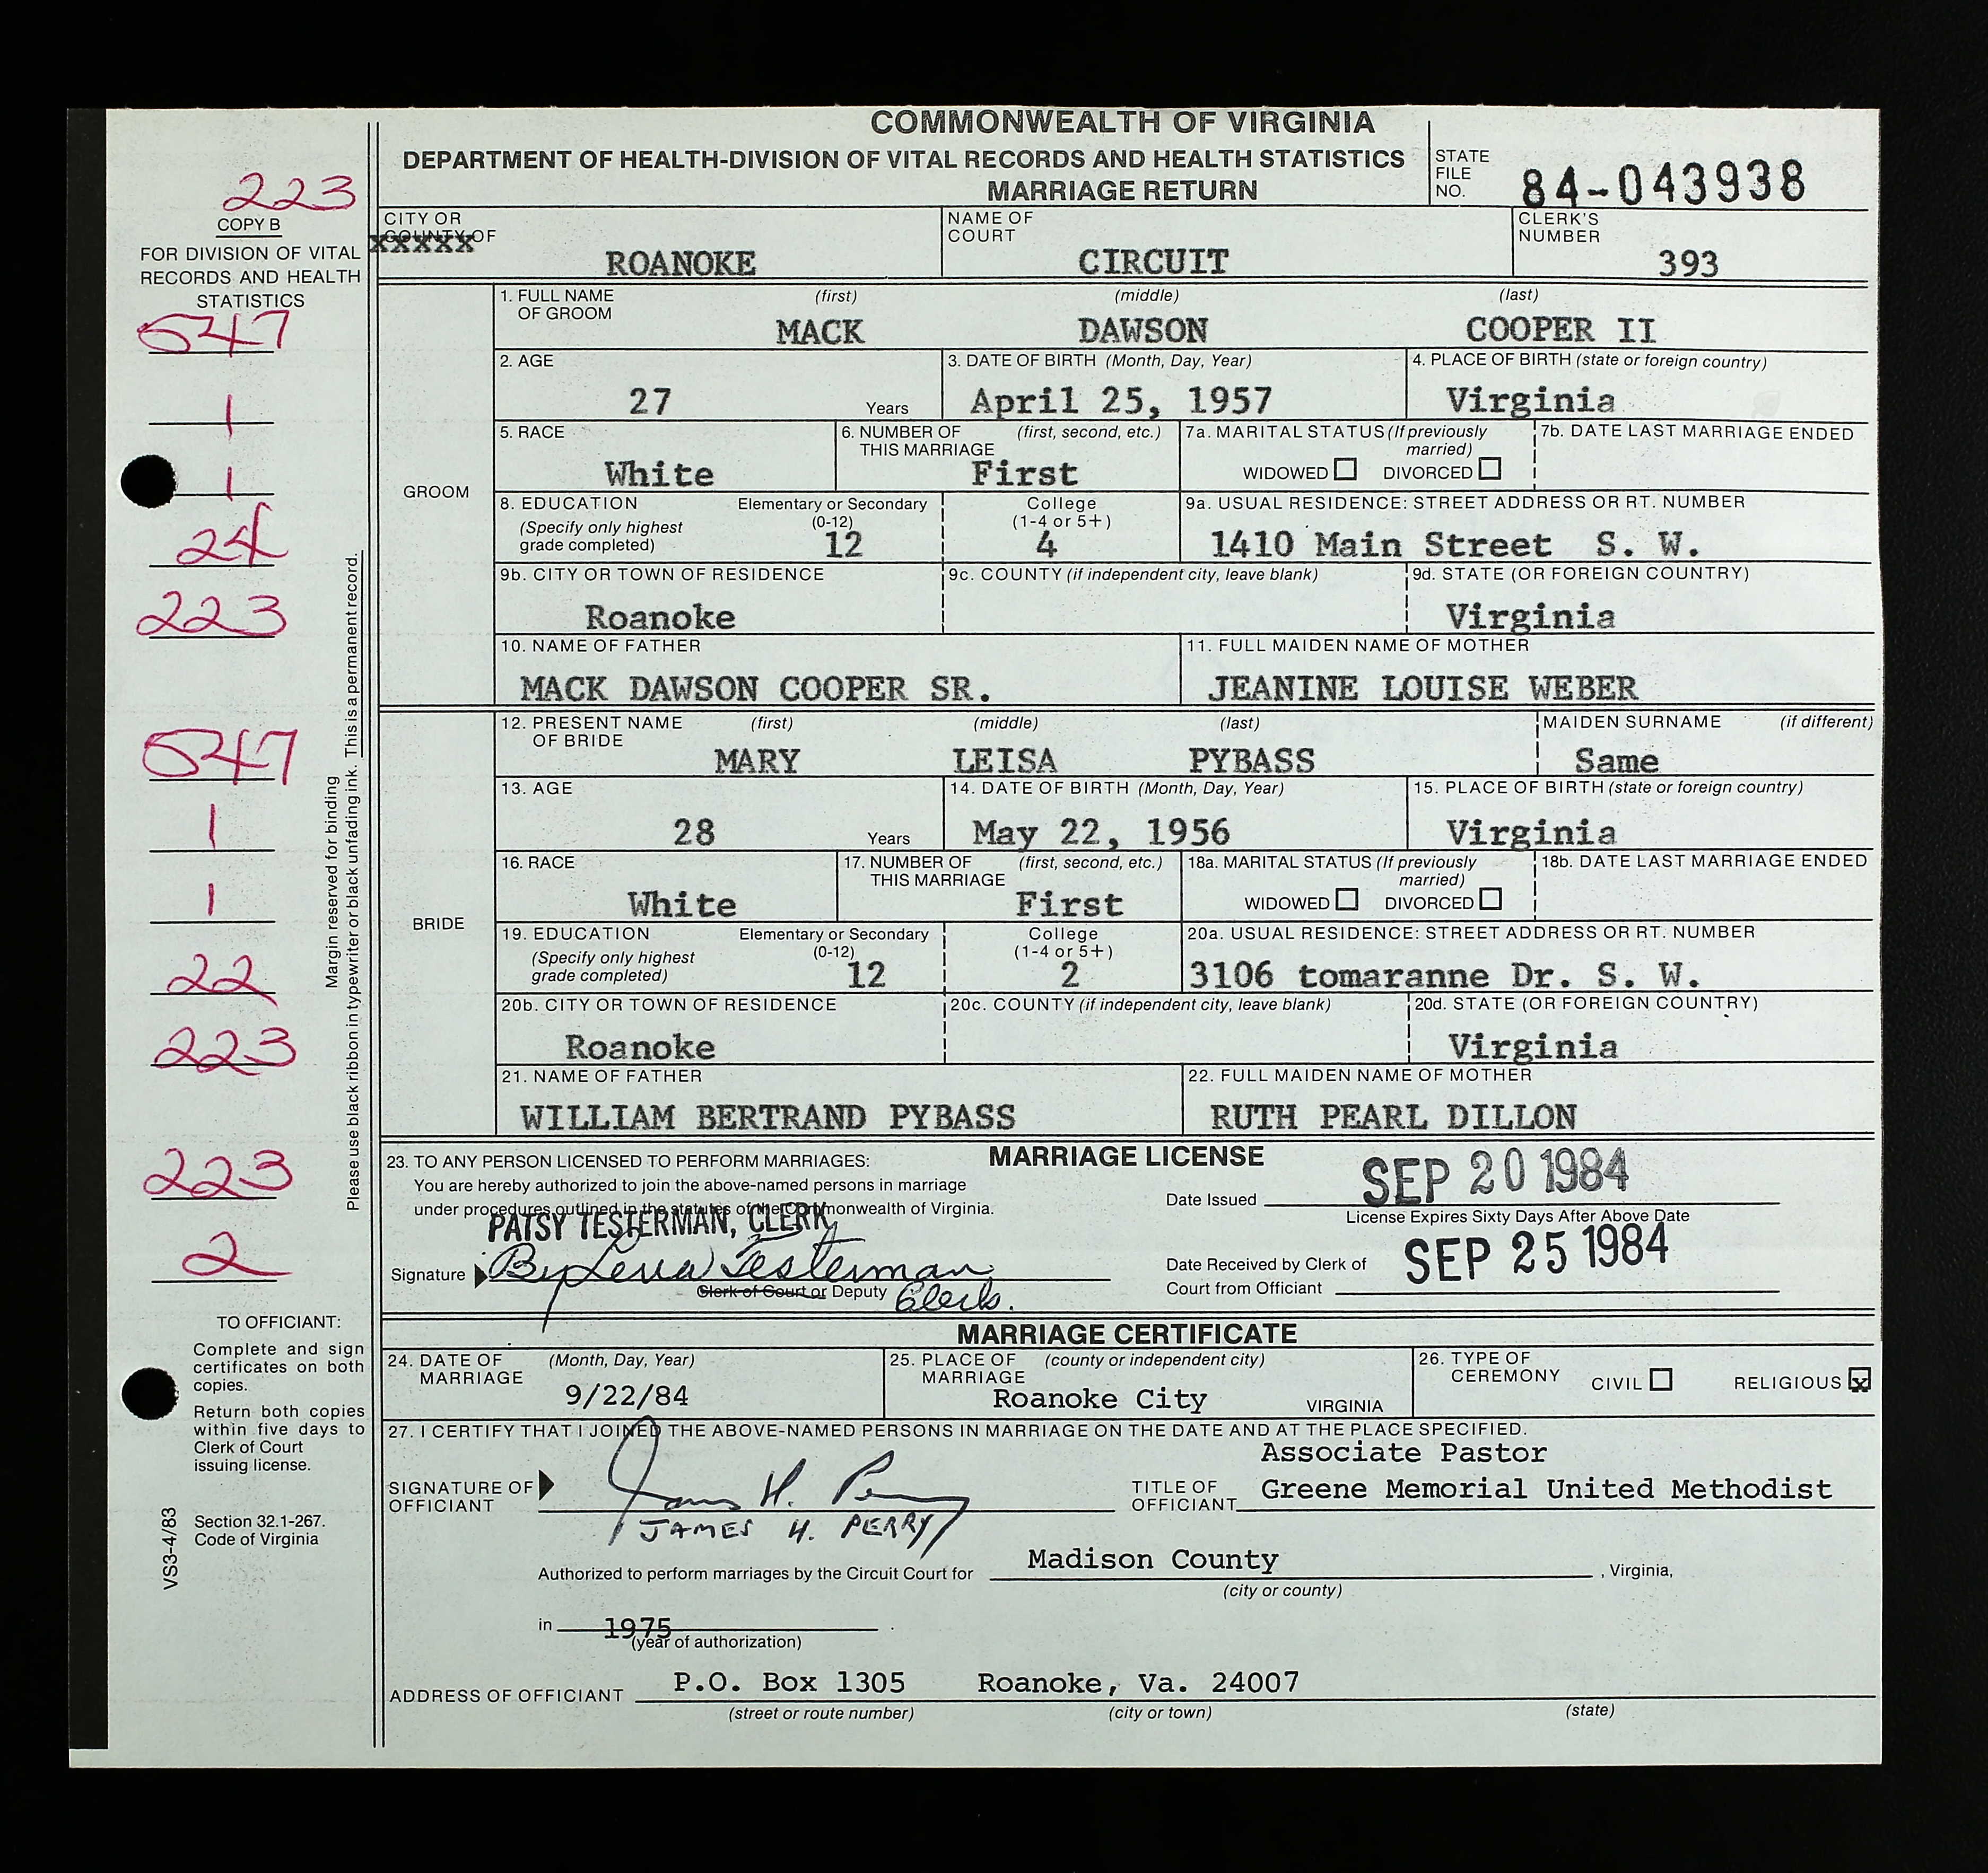 COMMONWEALTH OF VIRGINIA
DEPARTMENT OF HEALTH-DIVISION OF VITAL RECORDS AND HEALTH STATISTICS
MARRIAGE RETURN
STATE FILE NO. 84-043938
223
COPY B
FOR DIVISION OF VITAL
RECORDS AND HEALTH
STATISTICS
547
1
1
24
223
547
1
1
22
223
223
2
Margin reserved for binding
Please use black ribbon in typewriter or black unfading ink. This is a permanent record.
TO OFFICIANT:
Complete and sign
certificates on both
copies.
Return both copies
within five days to
Clerk of Court
issuing license.
Section 32.1-267.
Code of Virginia
VS3-4/83
CITY OR COUNTY OF ROANOKE
XXXXX
NAME OF COURT CIRCUIT
CLERK'S NUMBER 393
GROOM
1. FULL NAME OF GROOM (first) (middle) (last)
MACK DAWSON COOPER II
2. AGE 27 Years
3. DATE OF BIRTH (Month, Day, Year) April 25, 1957
4. PLACE OF BIRTH (state or foreign country) Virginia
5. RACE White
6. NUMBER OF THIS MARRIAGE (first, second, etc.) First
7a. MARITAL STATUS (If previously married) WIDOWED DIVORCED
7b. DATE LAST MARRIAGE ENDED
8. EDUCATION (Specify only highest grade completed) Elementary or Secondary (0-12) 12 College (1-4 or 5+) 4
9a. USUAL RESIDENCE: STREET ADDRESS OR RT. NUMBER 1410 Main Street S. W.
9b. CITY OR TOWN OF RESIDENCE Roanoke
9c. COUNTY (if independent city, leave blank)
9d. STATE (OR FOREIGN COUNTRY) Virginia
10. NAME OF FATHER MACK DAWSON COOPER SR.
11. FULL MAIDEN NAME OF MOTHER JEANINE LOUISE WEBER
BRIDE
12. PRESENT NAME OF BRIDE (first) (middle) (last) MARY LEISA PYBASS
MAIDEN SURNAME (if different) Same
13. AGE 28 Years
14. DATE OF BIRTH (Month, Day, Year) May 22, 1956
15. PLACE OF BIRTH (state or foreign country) Virginia
16. RACE White
17. NUMBER OF THIS MARRIAGE (first, second, etc.) First
18a. MARITAL STATUS (If previously married) WIDOWED DIVORCED
18b. DATE LAST MARRIAGE ENDED
19. EDUCATION (Specify only highest grade completed) Elementary or Secondary (0-12) 12 College (1-4 or 5+) 2
20a. USUAL RESIDENCE: STREET ADDRESS OR RT. NUMBER 3106 tomaranne Dr. S. W.
20b. CITY OR TOWN OF RESIDENCE Roanoke
20c. COUNTY (if independent city, leave blank)
20d. STATE (OR FOREIGN COUNTRY) Virginia
21. NAME OF FATHER WILLIAM BERTRAND PYBASS
22. FULL MAIDEN NAME OF MOTHER RUTH PEARL DILLON
MARRIAGE LICENSE
23. TO ANY PERSON LICENSED TO PERFORM MARRIAGES:
You are hereby authorized to join the above-named persons in marriage
under procedures outlined in the statutes of the Commonwealth of Virginia.
PATSY TESTERMAN, CLERK
Signature By Lena Testerman
Clerk of Court or Deputy Clerk.
Date Issued SEP 20 1984
License Expires Sixty Days After Above Date
Date Received by Clerk of
Court from Officiant SEP 25 1984
MARRIAGE CERTIFICATE
24. DATE OF MARRIAGE (Month, Day, Year) 9/22/84
25. PLACE OF MARRIAGE (county or independent city) Roanoke City VIRGINIA
26. TYPE OF CEREMONY CIVIL RELIGIOUS X
27. I CERTIFY THAT I JOINED THE ABOVE-NAMED PERSONS IN MARRIAGE ON THE DATE AND AT THE PLACE SPECIFIED.
SIGNATURE OF OFFICIANT James H. Perry
JAMES H. PERRY
TITLE OF OFFICIANT Associate Pastor
Greene Memorial United Methodist
Authorized to perform marriages by the Circuit Court for Madison County , Virginia,
(city or county)
in 1975
(year of authorization)
ADDRESS OF OFFICIANT P.O. Box 1305 Roanoke, Va. 24007
(street or route number) (city or town) (state)